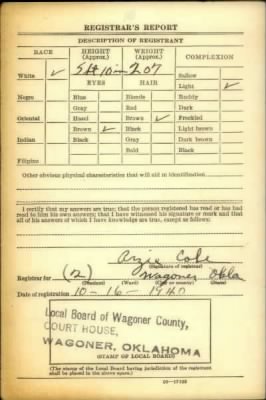 REGISTRAR'S REPORT
DESCRIPTION OF REGISTRANT
RACE HEIGHT (Approx.) WEIGHT (Approx.) COMPLEXION
5 ft 10 in 207
White ✓ EYES HAIR Sallow
Light ✓
Negro Blue Blonde Ruddy
Gray Red Dark
Oriental Hazel Brown ✓ Freckled
Brown ✓ Black Light brown
Indian Black Gray Dark brown
Bald Black
Filipino
Other obvious physical characteristics that will aid in identification
I certify that my answers are true; that the person registered has read or has had
read to him his own answers; that I have witnessed his signature or mark and that
all of his answers of which I have knowledge are true, except as follows:
Cole
(Signature of registrar)
Registrar for (2) Wagoner Okla
(Precinct) (Ward) (City or county) (State)
Date of registration 10-16-1940
Local Board of Wagoner County,
COURT HOUSE,
WAGONER, OKLAHOMA
(STAMP OF LOCAL BOARD)
(The stamp of the Local Board having jurisdiction of the registrant
shall be placed in the above space.)